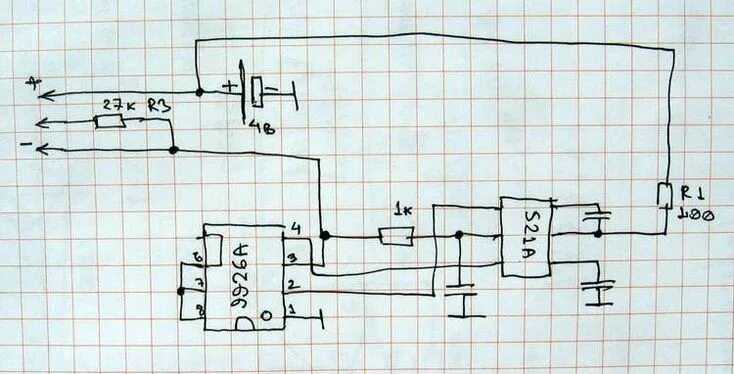 +
27к R3
-
+ -
4в
1к
S21A
R1
100
9926A
4
3
2
1
6
7
8